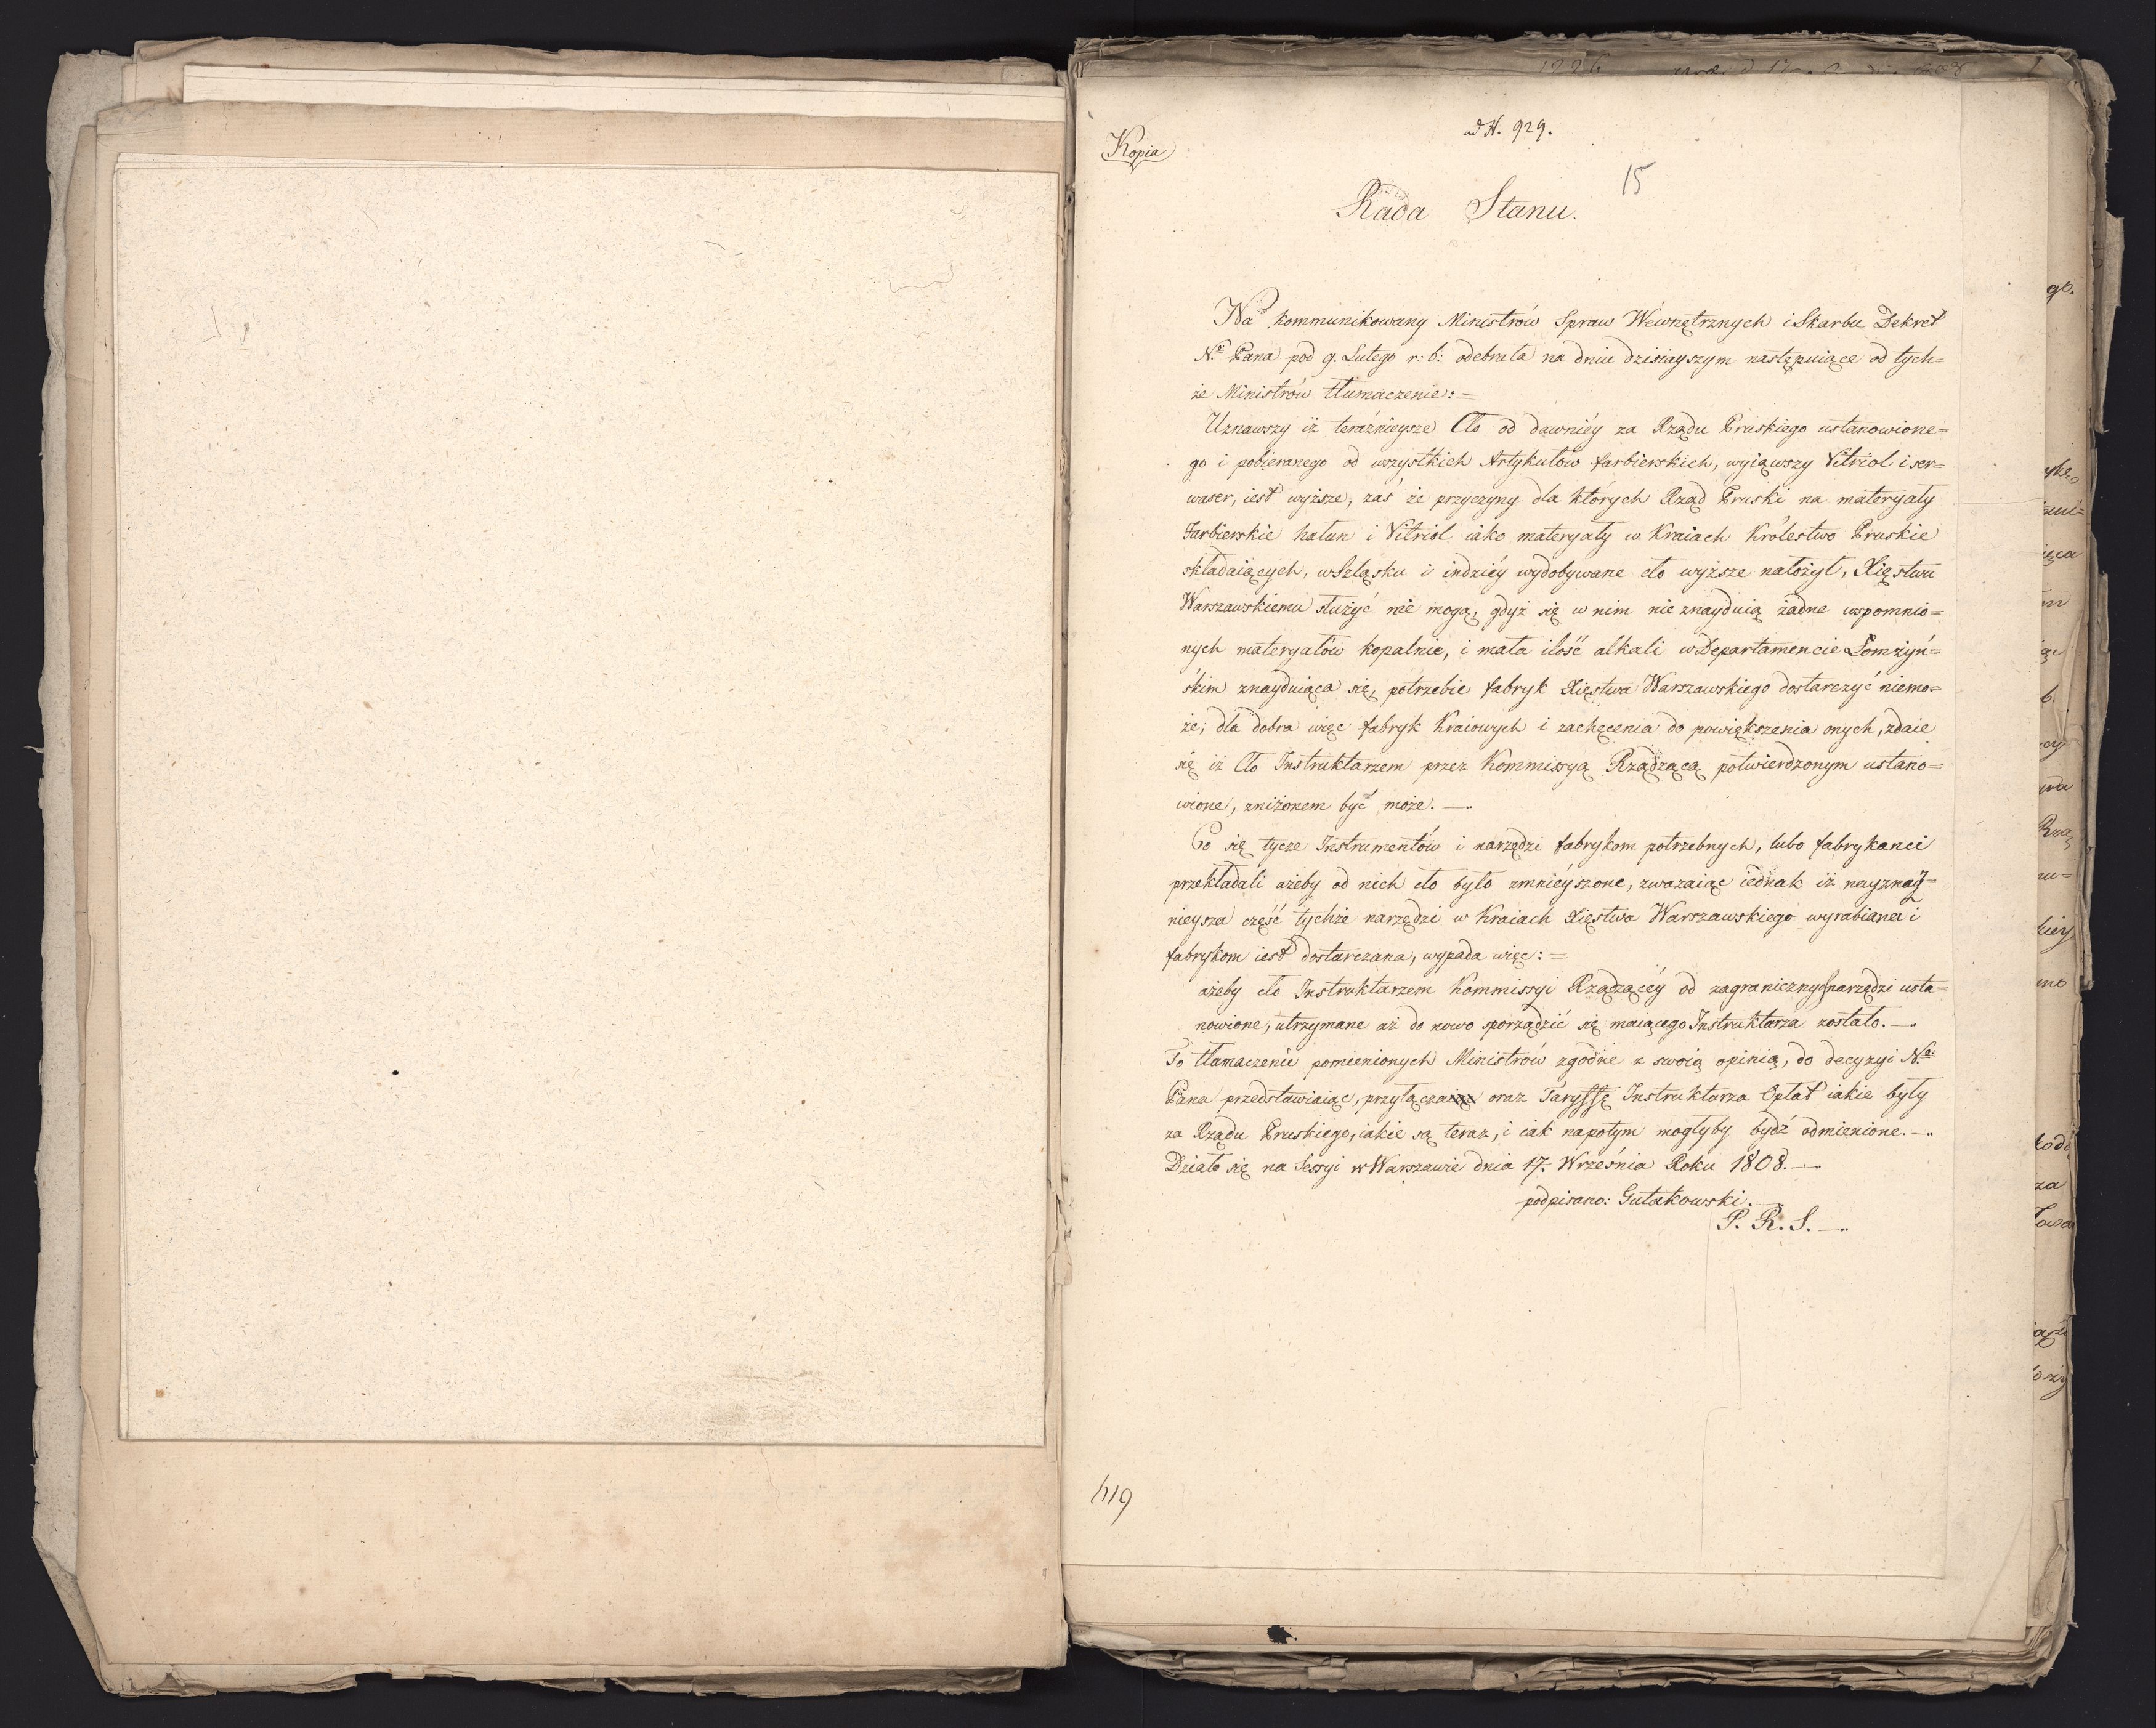 ad N. 929.
Kopia
15
Rada Stanu.
Na kommunikowany Ministrów Spraw Wewnętrznych i Skarbu Dekret
Nº Pana pod 9. Lutego r: b: odebrała na dniu dzisiayszym następuiące od tych=
że Ministrów tłumaczenie:=
Uznawszy iż teráźnieysze Cło od dawniéy za Rządu Pruskiego ustanowione=
go i pobieranego od wszystkich Artykułów farbierskich, wyiąwszy Vitriol i ser=
waser, iest wyższe, zaś że przyczyny dla których Rząd Pruski na materyały
Farbierskie hałun i Vitriol iako materyały w Kraiach Królestwo Pruskie
składaiących, w Szląsku i indziéy wydobywane cło wyższe nałożył, Xięstwu
Warszawskiemu służyć nie mogą, gdyż się w nim nie znayduią żadne wspomnio=
nych materyałów kopalnie, i mała ilość alkali w Departamencie Łomżyń=
skim znayduiąca się, potrzebie fabryk Xięstwa Warszawskiego dostarczyć niemo=
że; dla dobra więc fabryk Kraiowych i zachęcenia do powiększenia onych, zdaie
się iż Cło Instruktarzem przez Kommissyą Rządzącą potwierdzonym ustano=
wione, zniżonem być może.—..
Co się tycze Instrumentów i narzędzi fabrykom potrzebnych, lubo fabrykanci
przekładali ażeby od nich cło było zmniéyszone, zważaiąc iednak iż nayznay=
nieysza część tychże narzędzi w Kraiach Xięstwa Warszawskiego wyrabiana i
fabrykom iest dostarczana, wypada więc:=
ażeby cło Instruktarzem Kommissyi Rządzącéy od zagranicznych narzędzi usta=
nowione, utrzymane aż do nowo sporządzić się maiącego Instruktarza zostało.—..
To tłamaczenie pomienionych Ministrów zgodne z swoią opinią, do decyzyi Nº:
Pana przedstawiaiąc, przyłącza oraz Taryffę Instruktarza Opłat iakie były
za Rządu Pruskiego, iakie są teraz, i iak napotym mogłyby bydź odmienione.—..
Działo się na Sessyi w Warszawie dnia 17. Września Roku 1808.—..
podpisano: Gutakowski.—
P. R. S.—..
419